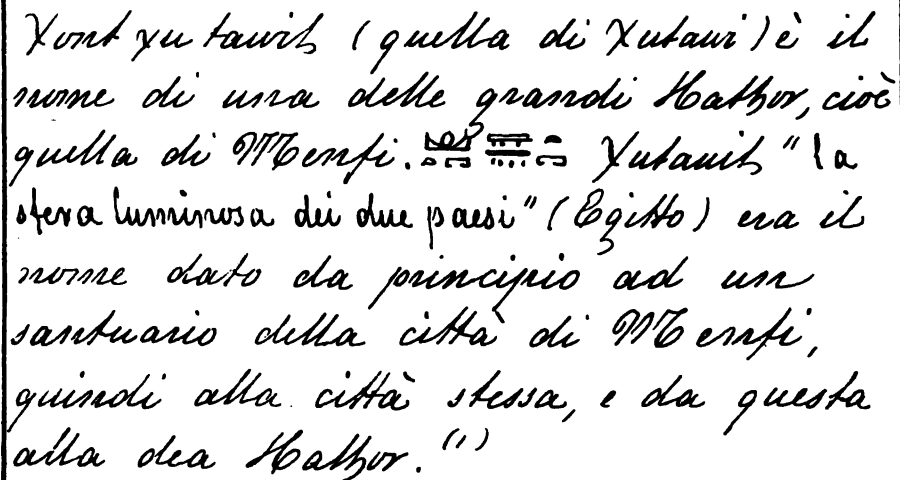 Xont χutawit (quella di Xutawi) è il
nome di una delle grandi Hathor, cioè
quella di Menfi. Xutauit "la
sfera luminosa dei due paesi" (Egitto) era il
nome dato da principio ad un
santuario della città di Menfi,
quindi alla città stessa, e da questa
alla dea Hathor. (1)